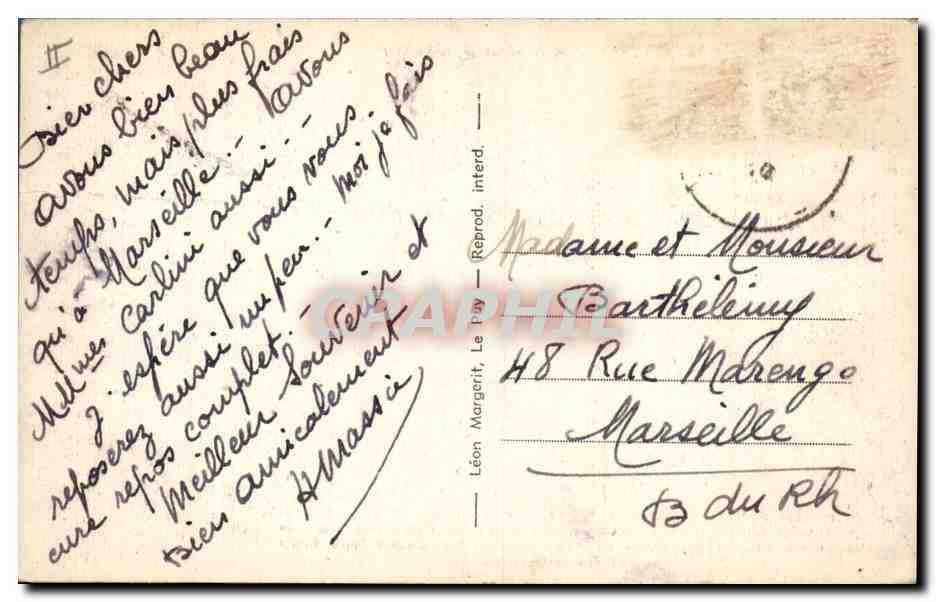 II
Bien chers
avons bien beau
temps, mais plus frais
qu'à Marseille.- avons
Mlles Carlini aussi.-
J'espère que vous vous
reposerez aussi un peu.- Moi je fais
cure repos complet.-
Meilleur Souvenir et
Bien amicalement
H Massié
Léon Margerit, Le Puy — Reprod. interd.
Madame et Monsieur
Barthélémy
48 Rue Marengo
Marseille
B du Rh
CPAPHIL